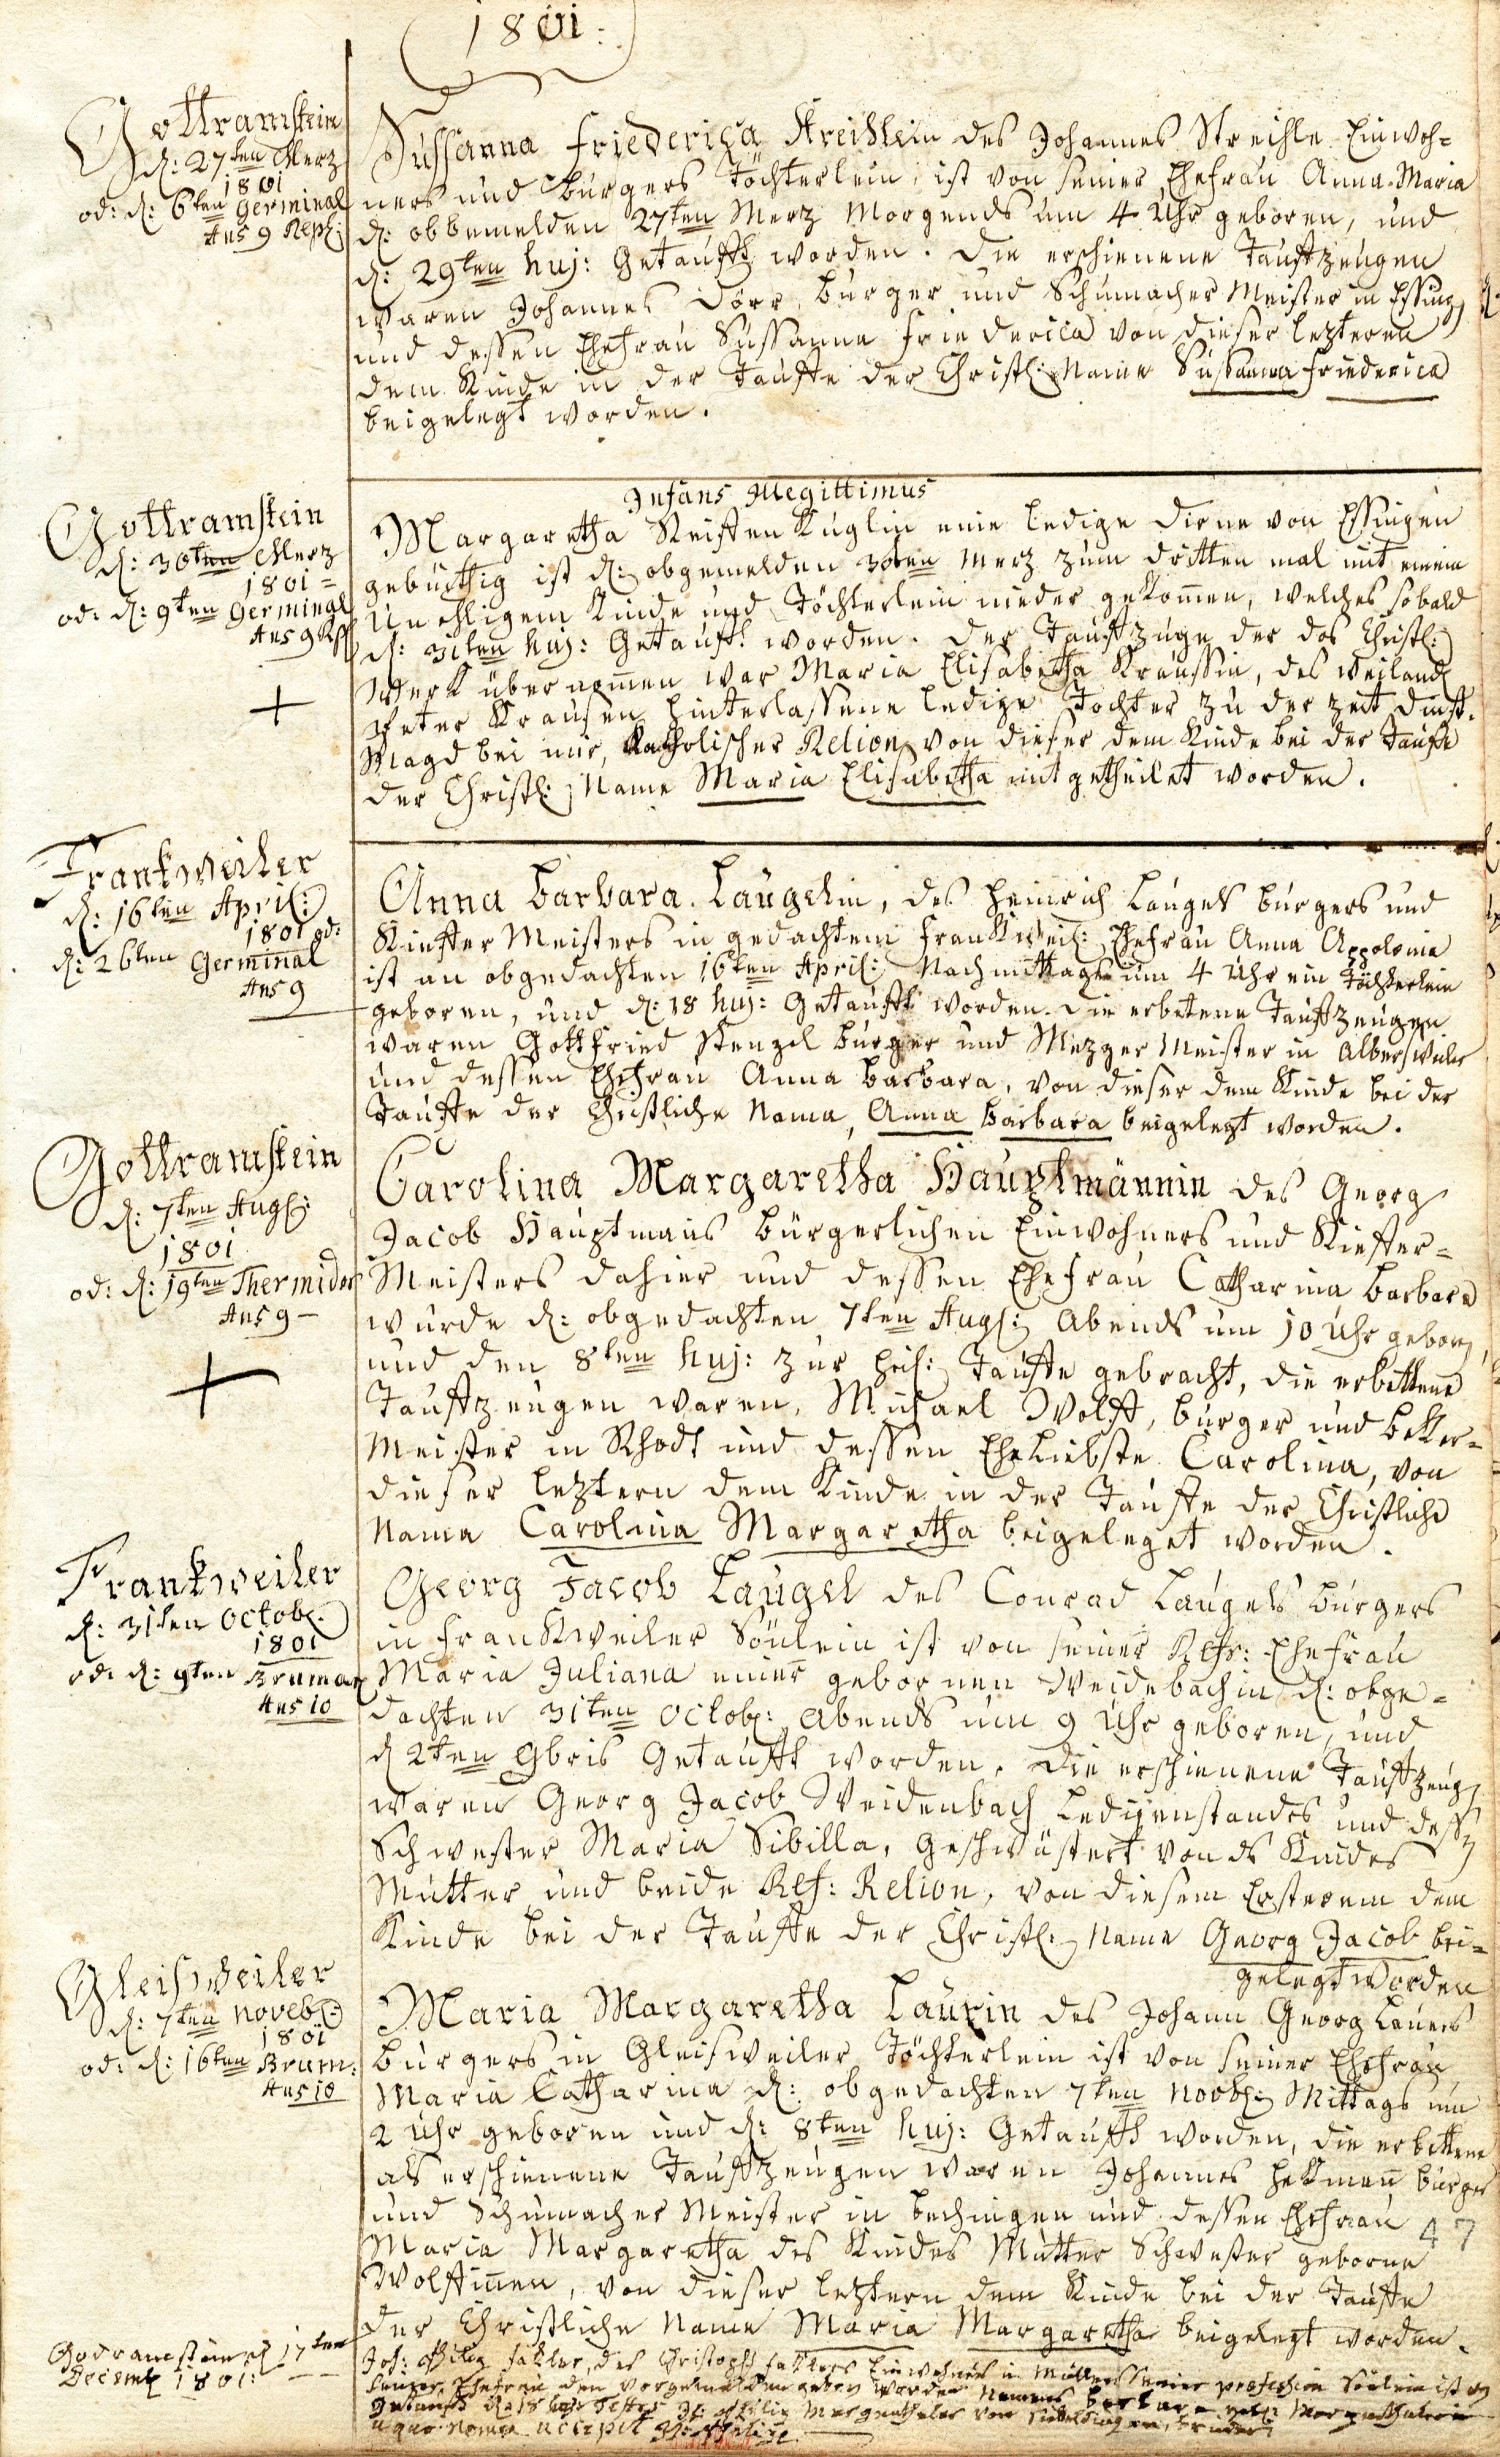 1801.
Gottramstein
d: 27ten Merz
1801
od: d: 6ten Germinal
Ans 9 Repl:
Sussanna Friederica Streichlein des Johannes Streichle Einwoh=
ners und Bürgers Töchterlein, ist von seiner Ehefrau Anna Maria
d: obbemelden 27ten Merz Morgends um 4 Uhr geboren, und
d: 29ten huj: Getaufft worden. Die erschienene Taufzeugen
waren Johannes Dörr, Burger und Schumacher Meister in Essing
und dessen Ehefrau Sussanna Friederica von dieser lezteren
dem Kinde in der Tauffe der Christl: Name Sussanna Friederica
beigelegt worden.
Infans Illegittimus
Gottramstein
d: 30ten Merz
1801 =
od: d: 9ten Germinal
Ans 9
Margaretha Kuglin eine ledige Dirne von Essingen
gebürthig ist d: obgemelden 30ten Merz zum dritten mal mit einem
Unehligem Kinde und Töchterlein nieder gekommen, welches sobald
d: 31ten huj: Getauft worden. Der Taufzüge der das Christl:
Werk übernommen war Maria Elisabetha Kraussin, des weiland
Peter Krausen hinterlassene ledige Tochter zu der zeit dinst-
Magd bei mir, Katholischer Relion, von dieser dem Kinde bei der Taufe
der Christl: Name Maria Elisabetha mitgetheilet worden.
Frankweiler
d: 16ten April:
1801 od:
d: 26ten Germinal
Ans 9
Anna Barbara Laugelin, des Heinrich Laugels burgers und
Kieffer Meisters in gedachtem Frankweil: Ehefrau Anna Appolonia
ist an obgedachten 16ten April: Nachmittags um 4 Uhr ein Töchterlein
geboren, und d: 18 huj: Getaufft worden. Die erbetene Taufzeugen
waren Gottfried Stenzel Burger und Mezger Meister in Albersweiler
und dessen Ehefrau Anna Barbara, von dieser dem Kinde bei der
Tauffe der Christliche Nama, Anna Barbara beigelegt worden.
Gottramstein
d: 7ten Augl:
1801
od: d: 19ten Thermidor
Ans 9 —
Carolina Margaretha Hauptmännin des Georg
Jacob Hauptmans bürgerlichen Einwohners und Kieffer=
Meisters dahier und dessen Ehefrau Catharina Barbara
wurde d: obgedachten 7ten Augl: Abends um 10 Uhr geborn
und den 8ten huj: zur heil: Tauffe gebracht, die erbettene
Taufzeugen waren, Michael Wolff, burger und Beker=
Meister in Rhodt und dessen Eheliebste Carolina, von
dieser leztern dem Kinde in der Tauffe der Christliche
Nama Carolina Margaretha beigeleget worden.
Frankweiler
d: 31ten Octob:
1801
od: d: 9ten Brumar
Ans 10
Georg Jacob Laugel des Conrad Laugels bürgers
in Frankweiler Sönlein ist von seiner Refr: Ehefrau
Maria Juliana einer gebornen Weidebachin d: obge=
dachten 31ten Octob: Abends um 9 Uhr geboren, und
d 2ten 9bris Getaufft worden. Die erschienene Taufzeug
waren Georg Jacob Weidenbach Ledigenstandes und dess
Schwester Maria Sibilla, Geschwistert von ds Kindes
Mutter und beide Ref: Relion, von diesem Ersterem dem
Kinde bei der Tauffe der Christl: Name Georg Jacob bei=
gelegt worden
Gleisweiler
d: 7ten Noveb:
1801
od: d: 16ten Brum:
Ans 10
Maria Margaretha Laurin des Johann Georg Lauers
Burgers in Gleisweiler Töchterlein ist von seiner Ehefrau
Maria Catharina d: obgedachten 7ten Novb: Mittags um
2 Uhr geboren und d: 8ten huj: Getaufft worden, die erbettene
als erschienene Taufzeugen waren Johannes Hekman burger
und Schumacher Meister in Bechingen und dessen Ehefrau
47
Maria Margaretha des Kindes Mutter Schwester geborne
Wolffinnen, von dieser leztern dem Kinde bei der Tauffe
der Christliche Name Maria Margaretha beigelegt worden.
Godramstein d 17ten
Decemb 1801:
Joh: Philip Fattler, des Christoph Fattlers Einwohners Müllers seiner profession Sönlein ist von
seiner Ehefrau den vorgemelden geborn worden Namens Barbara
Getauft d. 18 Joh: Philip Margenthaler von Siebeldingen,
a quo nomen accepit Joh: Philip.